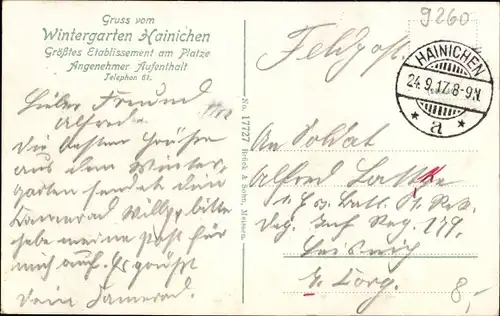 Gruss vom
Wintergarten Hainichen
Größtes Etablissement am Platze
Angenehmer Aufenthalt
Telephon 61.
9260
Feldpost
HAINICHEN
24.9.17.8-9N.
* a *
Lieber Freund
Alfred.
Die besten Grüße
aus dem Winter-
garten sendet dein
Kamerad Willy, bitte
hebe meine Post für
mich auf. Es grüßt
dein Kamerad.
No. 17727 Brück & Sohn, Meissen.
An Soldat
Alfred
Inf. Reg. 179.
Leisnig
8,-